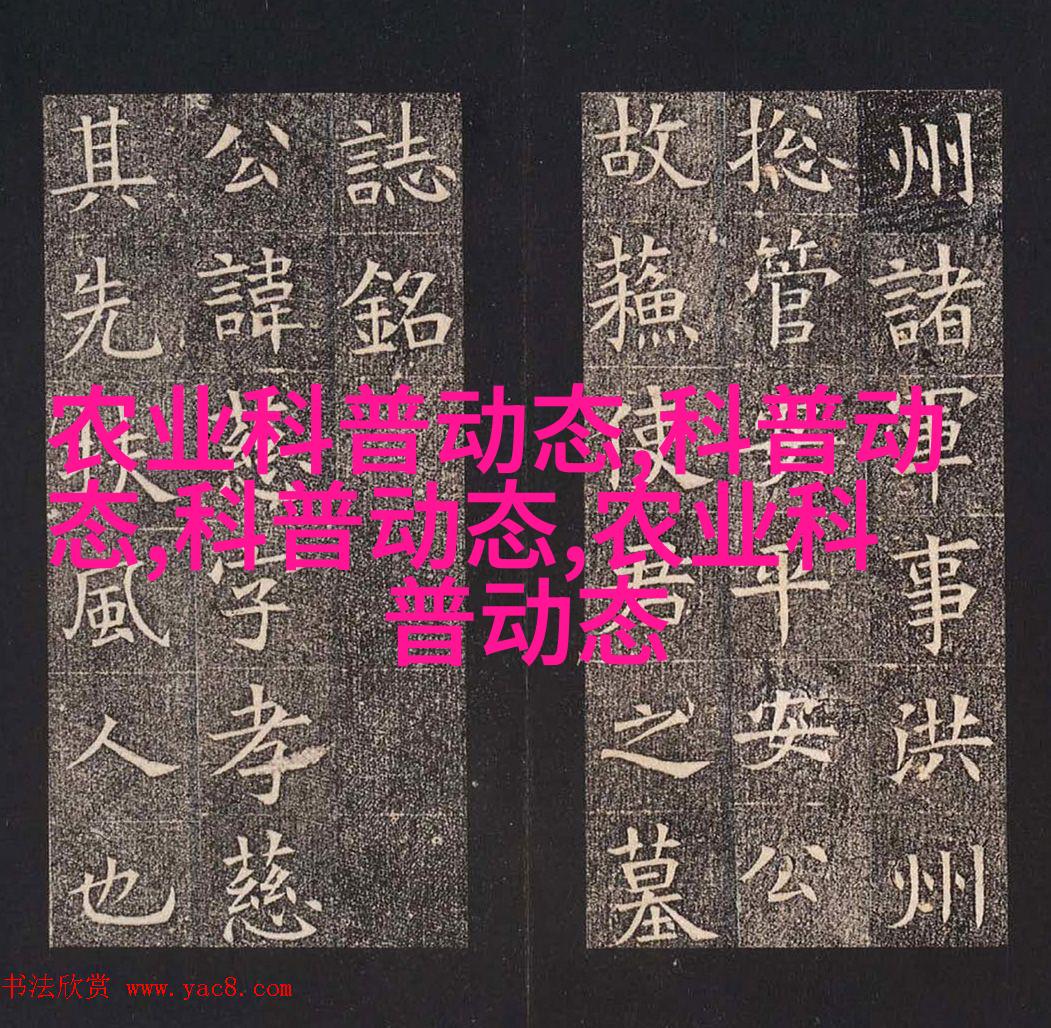 州諸軍事洪州
揔管安平安公
故蘓使君之墓
誌銘
公諱慈字孝慈
其先扶風人也
农业科普动态,科普动
态,科普动态,农业科
普动态
书法欣赏 www.yac8.com